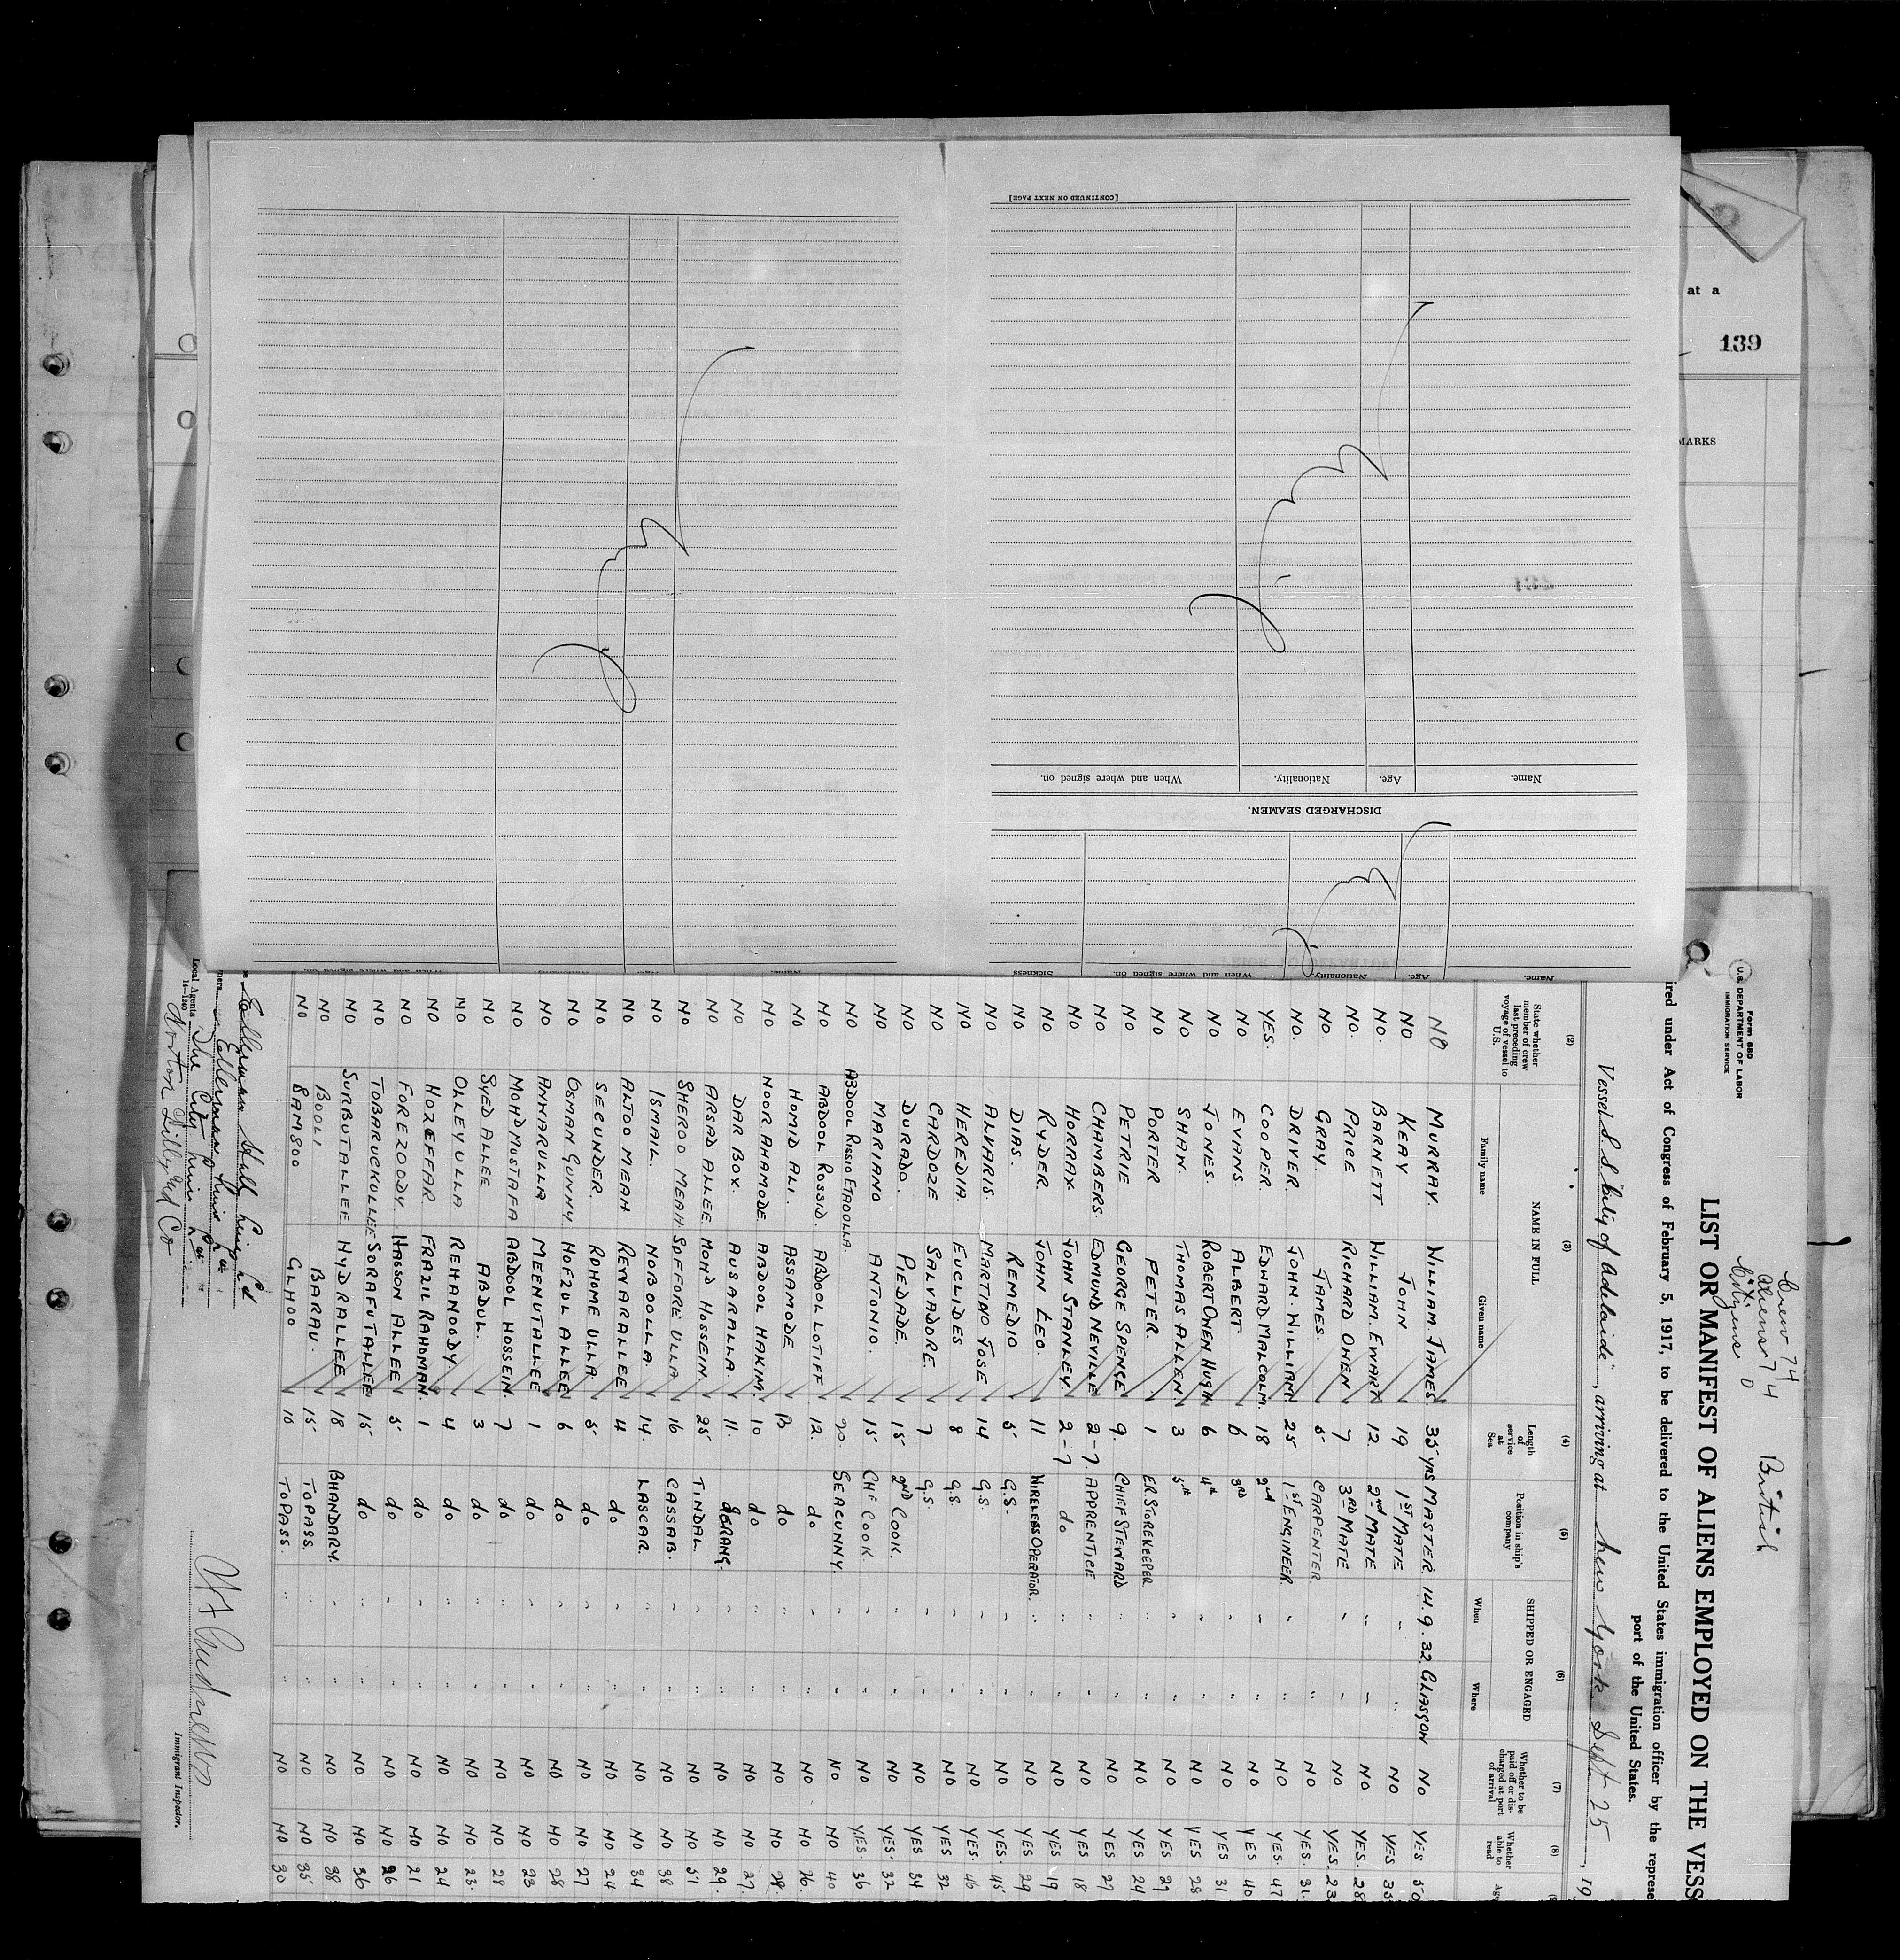 [CONTINUED ON NEXT PAGE]
DISCHARGED SEAMEN.
Name. Age. Nationality. When and where signed on.
Name. Age. Nationality. When and where signed on. Sickness
Name. Age. Nationality. When and where signed on.
at a
139
MARKS
Form 680
U.S. DEPARTMENT OF LABOR
IMMIGRATION SERVICE
Crew 74
Aliens 74
Citizens 0
British
LIST OR MANIFEST OF ALIENS EMPLOYED ON THE VESS
ired under Act of Congress of February 5, 1917, to be delivered to the United States immigration officer by the represe
port of the United States.
Vessel S.S. "City of Adelaide", arriving at New York Sept 25, 19
(2) (3) (4) (5) (6) (7) (8)
State whether member of crew last preceding voyage of vessel to U.S. NAME IN FULL Family name Given name Length of service at Sea Position in ship's company SHIPPED OR ENGAGED When Where Whether to be paid off or discharged at port of arrival Whether able to read Age
NO MURRAY. WILLIAM JAMES. 35 yrs MASTER. 14.9.32 GLASGOW NO YES 50
NO KEAY JOHN 19 1ST MATE " " NO YES 35
NO. BARNETT WILLIAM. EWART 12. 2nd MATE " " NO YES. 28
NO. PRICE RICHARD OWEN 7 3RD MATE " " NO YES. 23
NO. GRAY. JAMES. 5 CARPENTER. " NO YES. 31.
NO. DRIVER. JOHN. WILLIAM 25 1ST ENGINEER. " " NO YES. 47
YES. COOPER. EDWARD MALCOLM. 18 2nd " " NO YES 40
NO EVANS. ALBERT 6 3RD " " NO YES 31
NO JONES. ROBERT OWEN HUGH 6 4th " " NO YES 28
NO SHAN. THOMAS ALLEN. 3 5th " " NO YES 29
NO PORTER PETER. 1 ER. STOREKEEPER " " NO YES 24
NO PETRIE GEORGE SPENCE 9. CHIEF STEWARD " " NO YES 27
NO CHAMBERS. EDMUND NEVILLE 2-7. APPRENTICE " " NO YES 18
NO HORRAY. JOHN STANLEY. 2-7 do " " NO YES 19
NO RYDER JOHN LEO. 11 WIRELESS OPERATOR. " " NO YES 29
NO DIAS. REMEDIO 5 G.S. " " NO YES. 45
NO ALVARIS. MARTINO JOSE 14 G.S. " " NO YES. 46
NO HEREDIA. EUCLIDES 8 G.S. " " NO YES 32
NO CARDOZE SALVADORE. 7 G.S. " " NO YES 34
NO DURADO. PIEDADE. 15 2ND COOK. " " NO YES. 32
NO MARIANO ANTONIO. 15 CHF COOK " " NO YES. 36
NO ABDOOL RISSID ETADOLLA. 20. SEACUNNY. " " NO NO 40
NO ABDOOL ROSSID. ABDOOL LOTIFF 12. do " " NO NO 26.
NO HOMID ALI. ASSAMODE do " " NO NO 28.
NO NOOR AHAMODE ABDOOL HAKIM. 10 do " " NO NO 27.
NO DAR BOX. AUSARALLA. 11. SERANG. " " NO NO 29.
NO ARSAD ALLEE MOHD HOSSEIN. 25 TINDAL. " " NO NO 51
NO SHERO MEAH. SOFFORE ULLA 16 CASSAB. " " NO NO 38
NO ISMAIL. NOBOOLLA. 14. LASCAR. " " NO NO 34
NO ALTOO MEAH REWARALLEE 4 do " " NO NO 24
NO SECUNDER. ROHOME ULLA. 5 do " " NO NO 27
NO OSMAN GUNNY. HOFZUL ALLEE 6 do " " NO NO 28
NO ANWARULLA MEENUTALLEE 1 do " " NO NO 23
NO MOHD MUSTAFA ABDOOL HOSSEIN. 7 do " " NO NO 28
NO SYED ALLEE ABDUL. 3 do " " NO NO 23.
NO OLLEY ULLA REHANOODY. 4 do " " NO NO 24
NO HOZEFFAR FRAZIL RAHOMAN. 1 do " " NO NO 21
NO FOREZOODY. HASSON ALLEE 5 do " " NO NO 26
NO TOBARUCKULLEE SORAFUTALLEE 15 do " " NO NO 36
NO SURBUTALLEE HYDRALLEE 18 BHANDARY. " " NO NO 38
NO BOOLI BARAU. 15 TOPASS. " " NO NO 35
NO RAMBOO GLHOO 10 TOPASS. " " NO NO 30
Ellerman Hall Line Ltd
Owners Ellerman's Line Ltd
The City Line Ltd
Local Agents Norton Lilly and Co
14-1240
Immigrant Inspector.